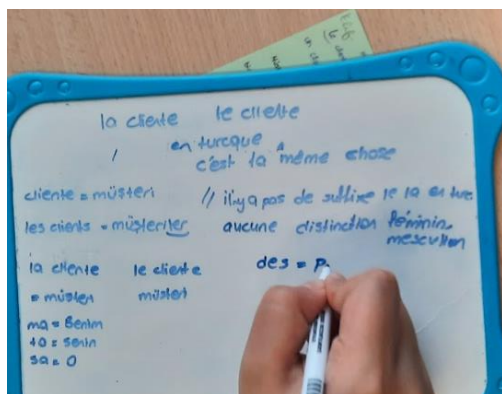 la cliente le cliente
en turcque
c'est la même chose
cliente = müşteri // il y a pas de suffixe le la en turc
les clients = müşteriler aucune distinction féminin
mesculien
la cliente le cliente des = p
= müşteri müşteri
ma = Benim
ta = senin
sa = O